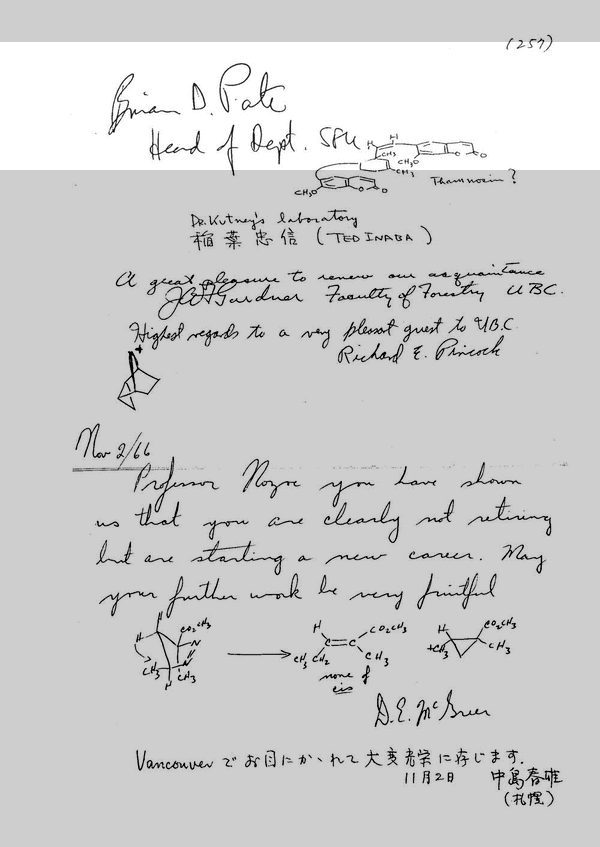 (257)
Brian D. Pate
Head of Dept. SFU
H H
CH3 CH3O
CH3
O O
CH3O O O
Thamnosin?
Dr. Kutney's laboratory
稲葉忠信 (TED INABA)
A great pleasure to renew our acquaintance
J.A.F. Gardner Faculty of Forestry UBC.
Highest regards to a very pleasant guest to U.B.C.
Richard E. Pincock
+
Nov 2/66
Professor Nozoe you have shown
us that you are clearly not retiring
but are starting a new career. May
your further work be very fruitful
H CO2CH3 H N N CH3 CH3 H
H CO2CH3 C=C CH3CH2 CH3
H CO2CH3 CH3 CH3
none of
cis
D.E. McGreer
Vancouverでお目にかゝれて大変光栄に存じます.
11月2日 中島春雄
(札幌)